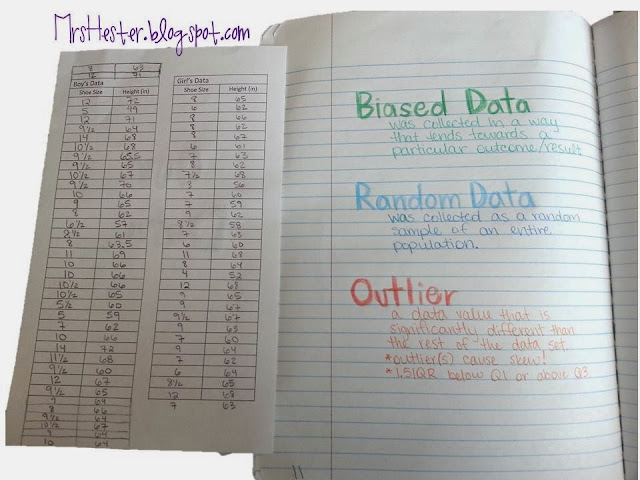 MrsHester.blogspot.com
8 63
12 71
Boy's Data
Shoe Size Height (in)
12 72
5 49
12 71
9½ 64
14 68
10½ 68
9½ 65.5
9½ 65
10½ 67
9½ 70
10 66
9 65
8 62
6½ 57
2½ 61
8 63.5
11 69
10 66
10 66
10½ 66
10½ 65
5½ 60
5 59
7 62
10 66
14 72
11½ 68
9½ 60
12 67
9½ 65
9 64
8 66
9½ 64
10½ 67
9 64
10 64
Girl's Data
Shoe Size Height (in)
8 65
6 62
8 66
8 62
8 67
6 61
7 63
8 62
7½ 68
3 56
7 60
7 59
9 62
8½ 58
7 63
6 60
11 68
8 64
4 52
12 68
9 65
9 67
9½ 67
9 63
7 60
9 64
7 62
6 64
8½ 65
12 68
7 63
Biased Data
was collected in a way
that tends towards a
particular outcome/result.
Random Data
was collected as a random
sample of an entire
population.
Outlier
a data value that is
significantly different than
the rest of the data set.
*outlier(s) cause skew!
*1.5IQR below Q1 or above Q3
11